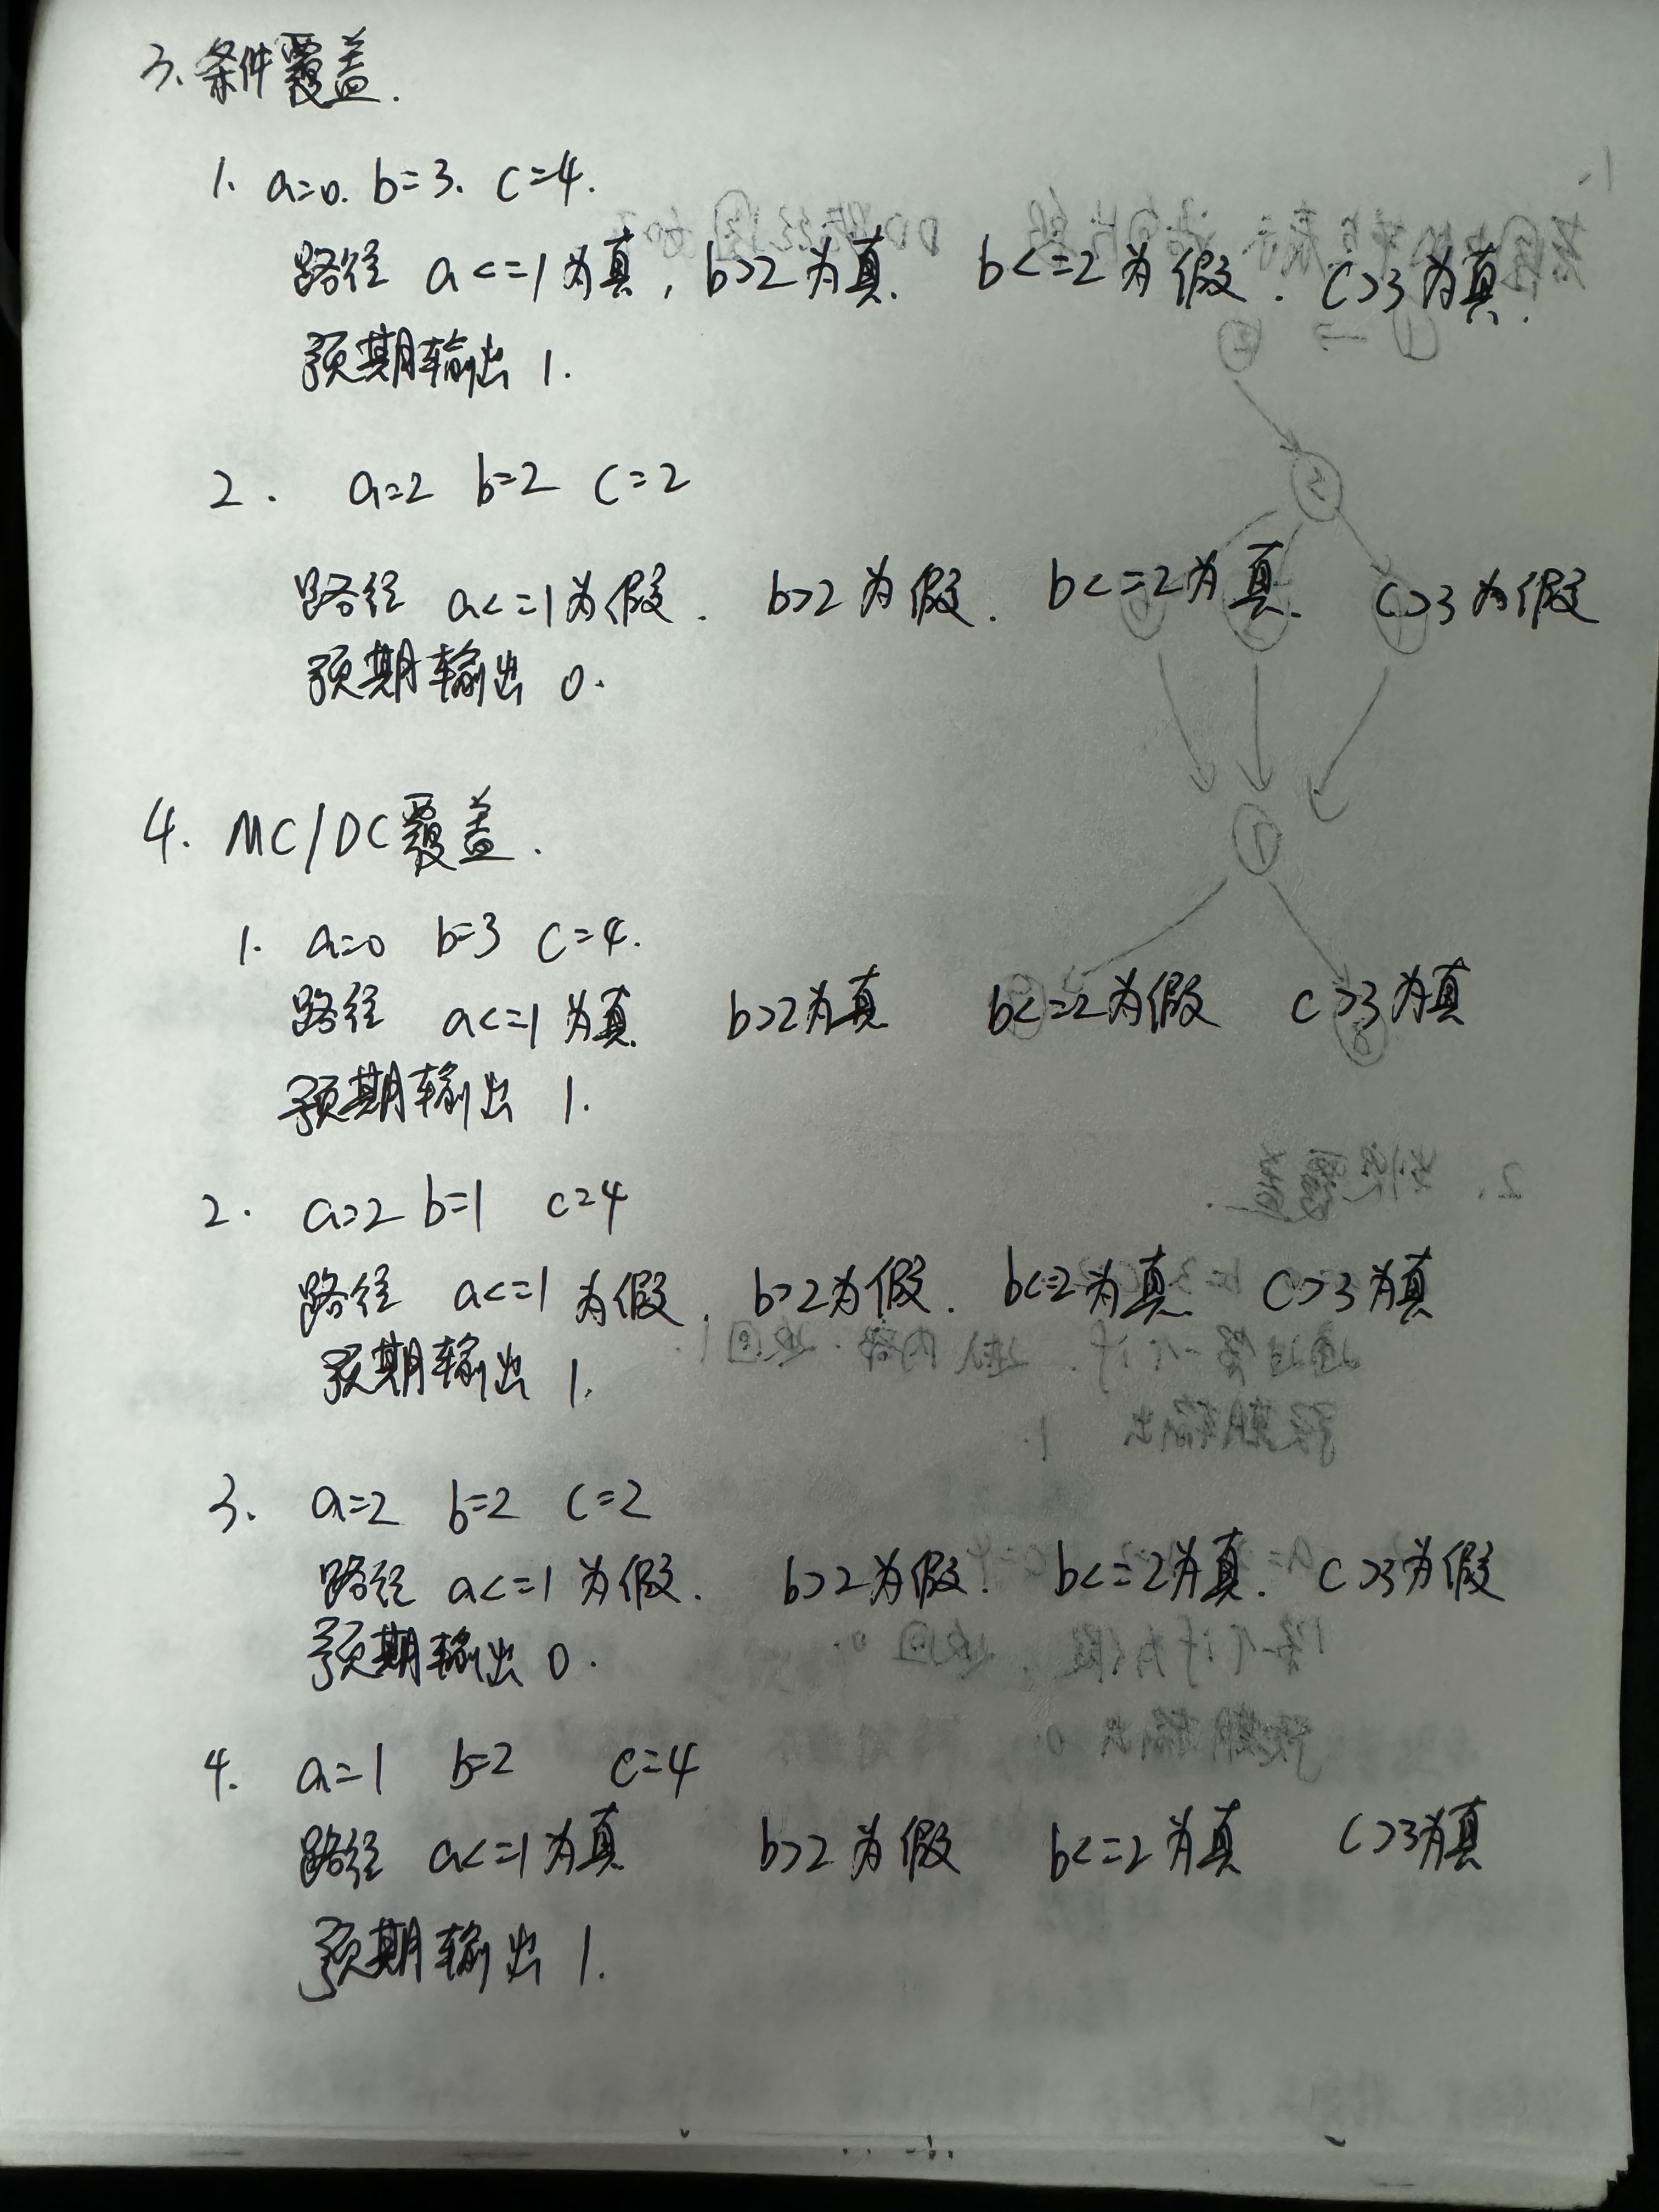 3、条件覆盖.
1. a=0. b=3. c=4.
路径 a<=1为真, b>2为真. b<=2为假. c>3为真.
预期输出 1.
2. a=2 b=2 c=2
路径 a<=1为假. b>2为假. b<=2为真. c>3为假
预期输出 0.
4. MC/DC覆盖.
1. a=0 b=3 c=4.
路径 a<=1为真 b>2为真 b<=2为假 c>3为真
预期输出 1.
2. a=2 b=1 c=4
路径 a<=1为假. b>2为假. b<=2为真 c>3为真
预期输出 1.
3. a=2 b=2 c=2
路径 a<=1为假. b>2为假. b<=2为真. c>3为假
预期输出 0.
4. a=1 b=2 c=4
路径 a<=1为真 b>2为假 b<=2为真 c>3为真
预期输出 1.